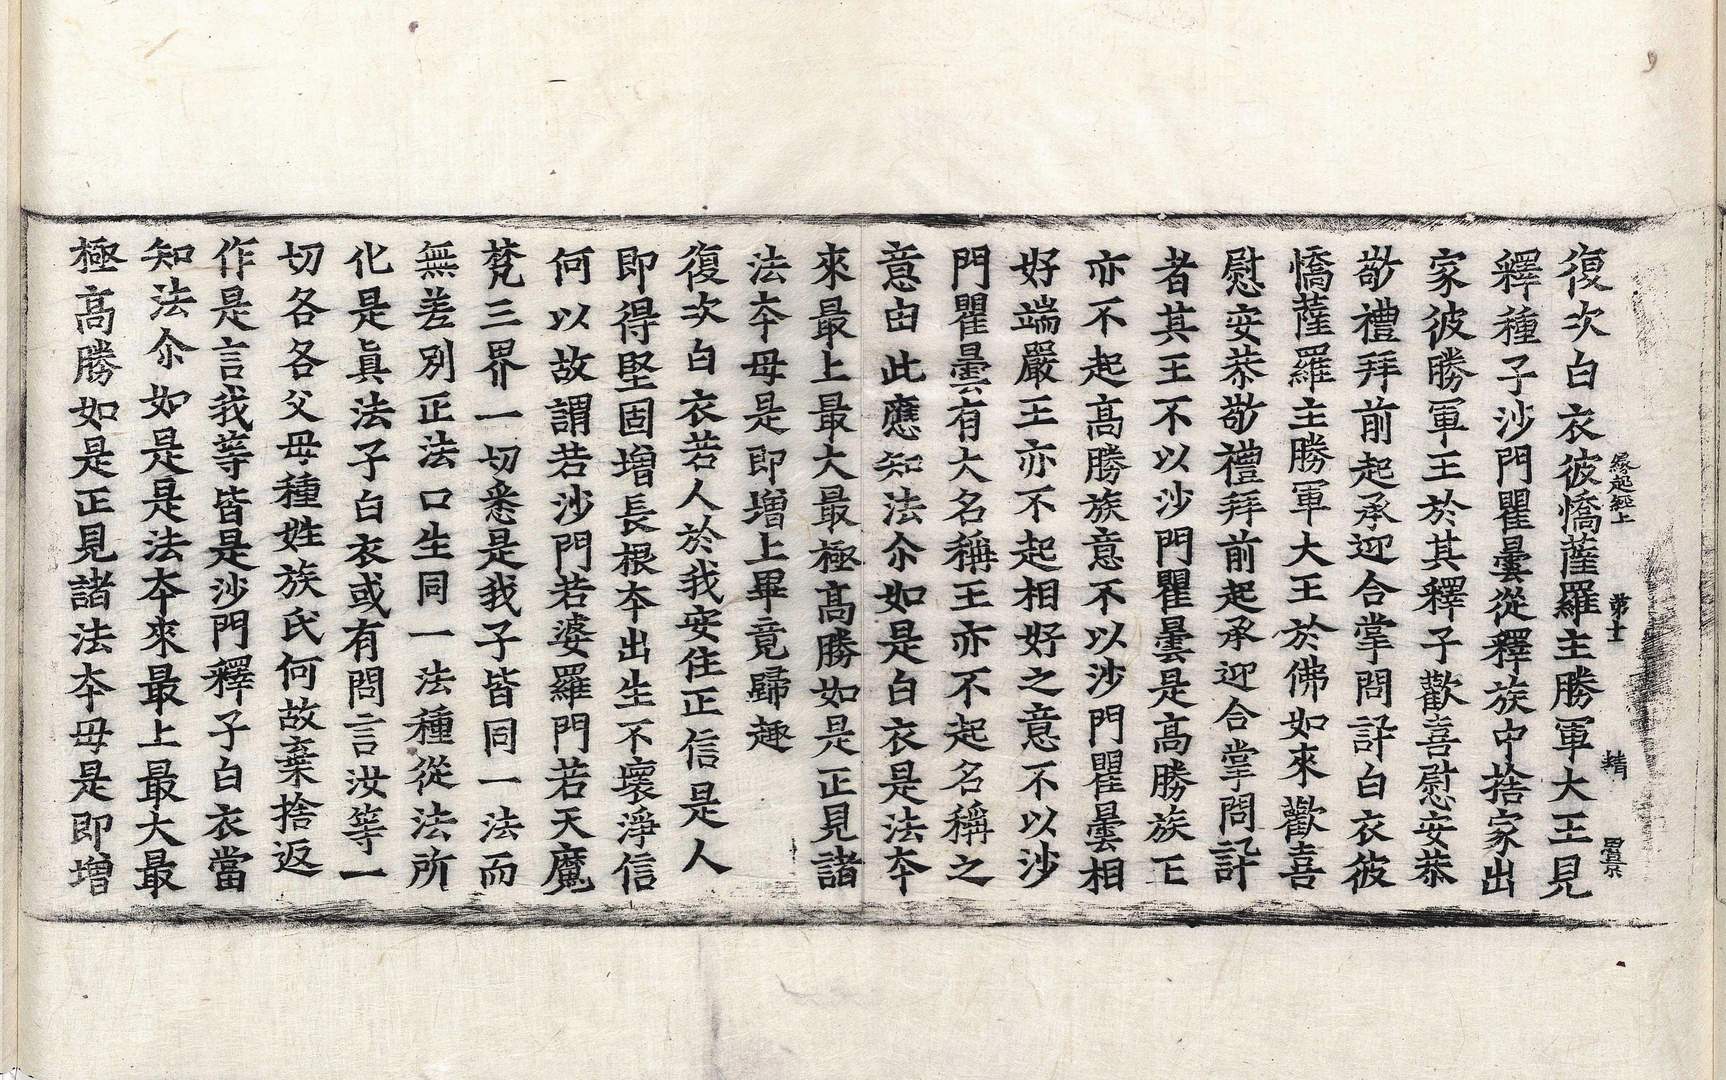 緣起經上 第十 精
復次白衣彼憍薩羅主勝軍大王見
釋種子沙門瞿曇從釋族中捨家出
家彼勝軍王於其釋子歡喜慰安恭
敬禮拜前起承迎合掌問訊白衣彼
憍薩羅主勝軍大王於佛如來歡喜
慰安恭敬禮拜前起承迎合掌問訊
者其王不以沙門瞿曇是高勝族王
亦不起高勝族意不以沙門瞿曇相
好端嚴王亦不起相好之意不以沙
門瞿曇有大名稱王亦不起名稱之
意由此應知法尒如是白衣是法本
來最上最大最極高勝如是正見諸
法本母是即增上畢竟歸趣
復次白衣若人於我安住正信是人
即得堅固增長根本出生不壞淨信
何以故謂若沙門若婆羅門若天魔
梵三界一切悉是我子皆同一法而
無差別正法口生同一法種從法所
化是真法子白衣或有問言汝等一
切各各父母種姓族氏何故棄捨返
作是言我等皆是沙門釋子白衣當
知法尒如是是法本來最上最大最
極高勝如是正見諸法本母是即增